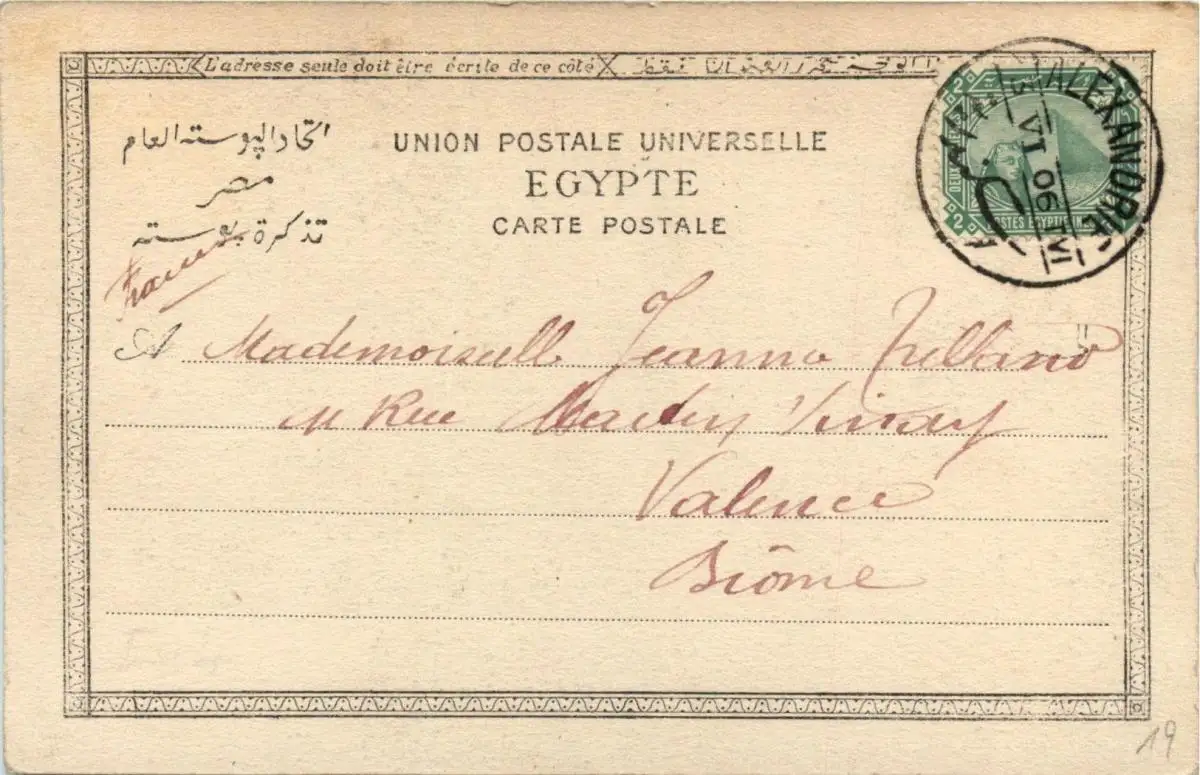 L'adresse seule doit être écrite de ce côté
اتحاد البوسته العام
مصر
تذكرة بوسته
UNION POSTALE UNIVERSELLE
EGYPTE
CARTE POSTALE
ALEXANDRIE
VI 06 TVI
2 2
POSTES EGYPTIENNES
France
A Mademoiselle Jeanne
11 Rue
Valence
Drôme
19